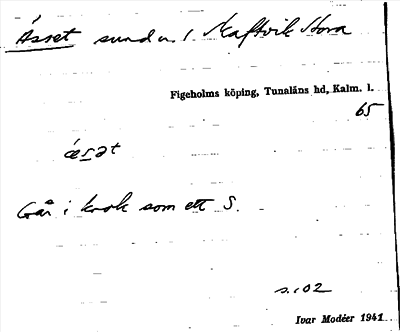 Ässet sund n. / Kaftvik Stora
Figeholms köping, Tunaläns hd, Kalm. l.
65
Går i krok som ett S.
s. 102
Ivar Modéer 1941